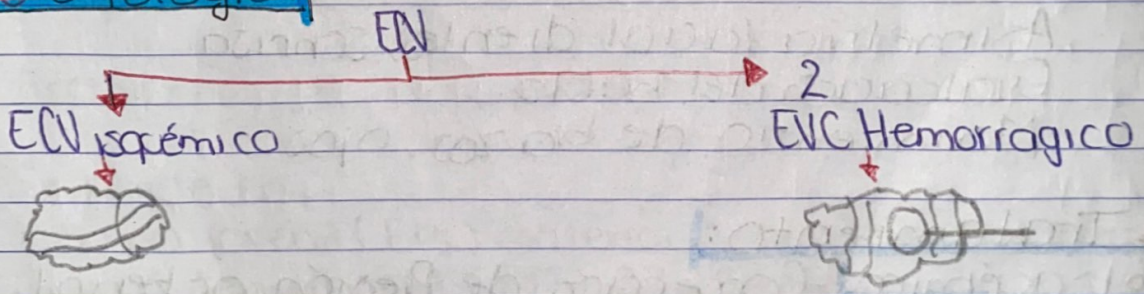 ECV
2
ECV isqémico
EVC Hemorragico